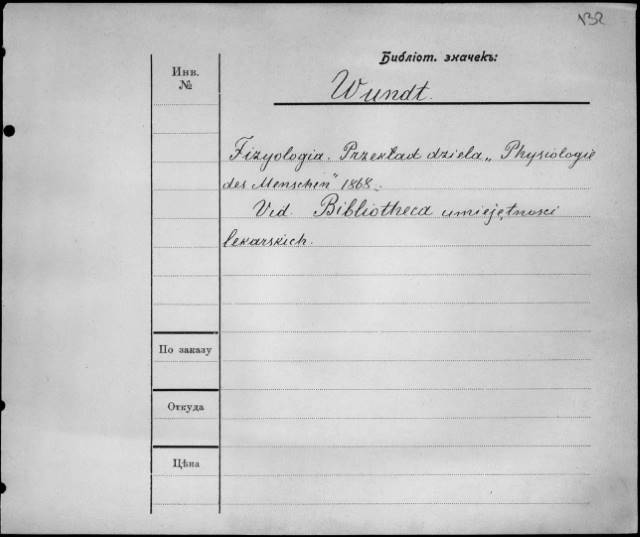 132
Библіот. значекъ:
Инв.
№
Wundt.
Fizyologia. Przekład dzieła „Physiologie
des Menschen" 1868.
Vid. Bibliotheca umiejętnosci
lekarskich.
По заказу
Откуда
Цѣна